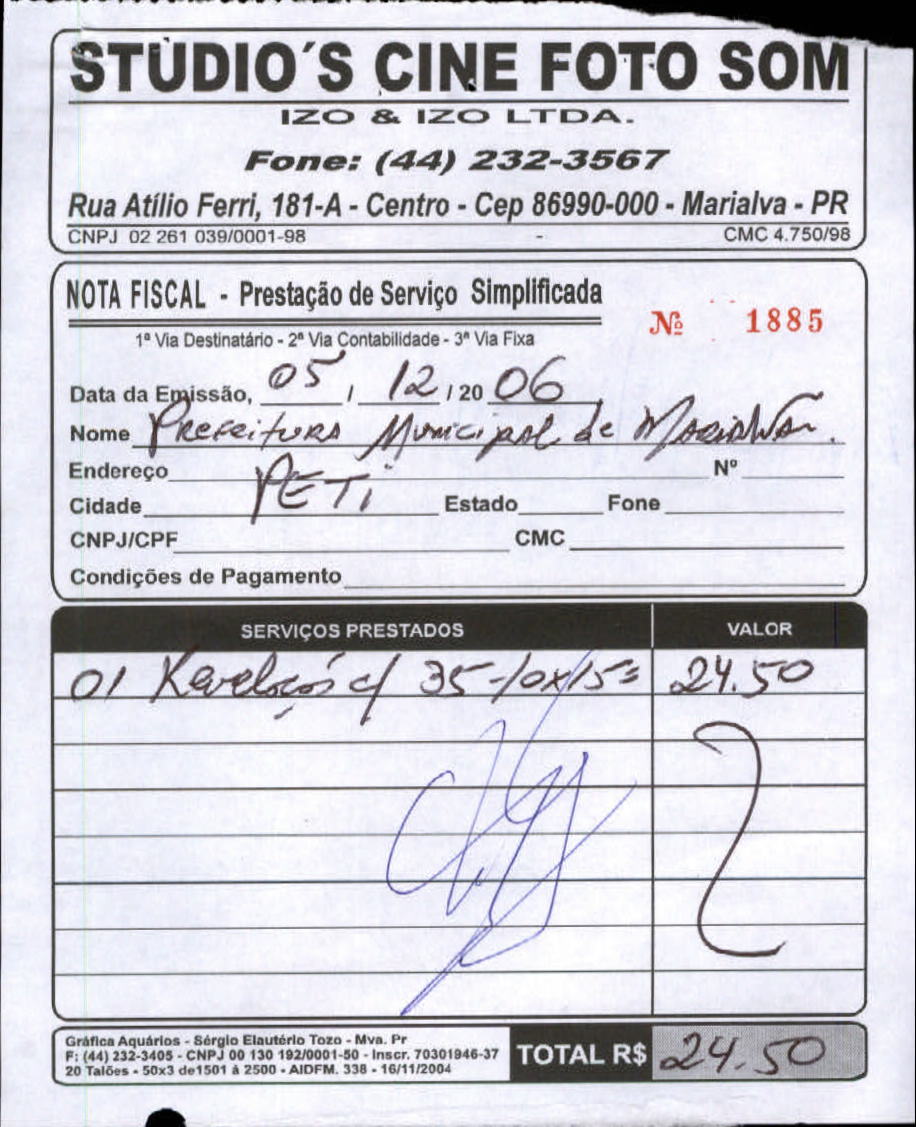 STÚDIO´S CINE FOTO SOM
IZO & IZO LTDA.
Fone: (44) 232-3567
Rua Atílio Ferri, 181-A - Centro - Cep 86990-000 - Marialva - PR
CNPJ 02 261 039/0001-98 - CMC 4.750/98
NOTA FISCAL - Prestação de Serviço Simplificada
Nº 1885
1ª Via Destinatário - 2ª Via Contabilidade - 3ª Via Fixa
Data da Emissão, 05 / 12 / 20 06
Nome Prefeitura Municipal de Marialva.
Endereço Nº
PETi
Cidade Estado Fone
CNPJ/CPF CMC
Condições de Pagamento
SERVIÇOS PRESTADOS VALOR
01 Revelação c/ 35-10x15= 24.50
Gráfica Aquários - Sérgio Elautério Tozo - Mva. Pr
F: (44) 232-3405 - CNPJ 00 130 192/0001-50 - Inscr. 70301946-37
20 Talões - 50x3 de1501 à 2500 - AIDFM. 338 - 16/11/2004
TOTAL R$ 24.50